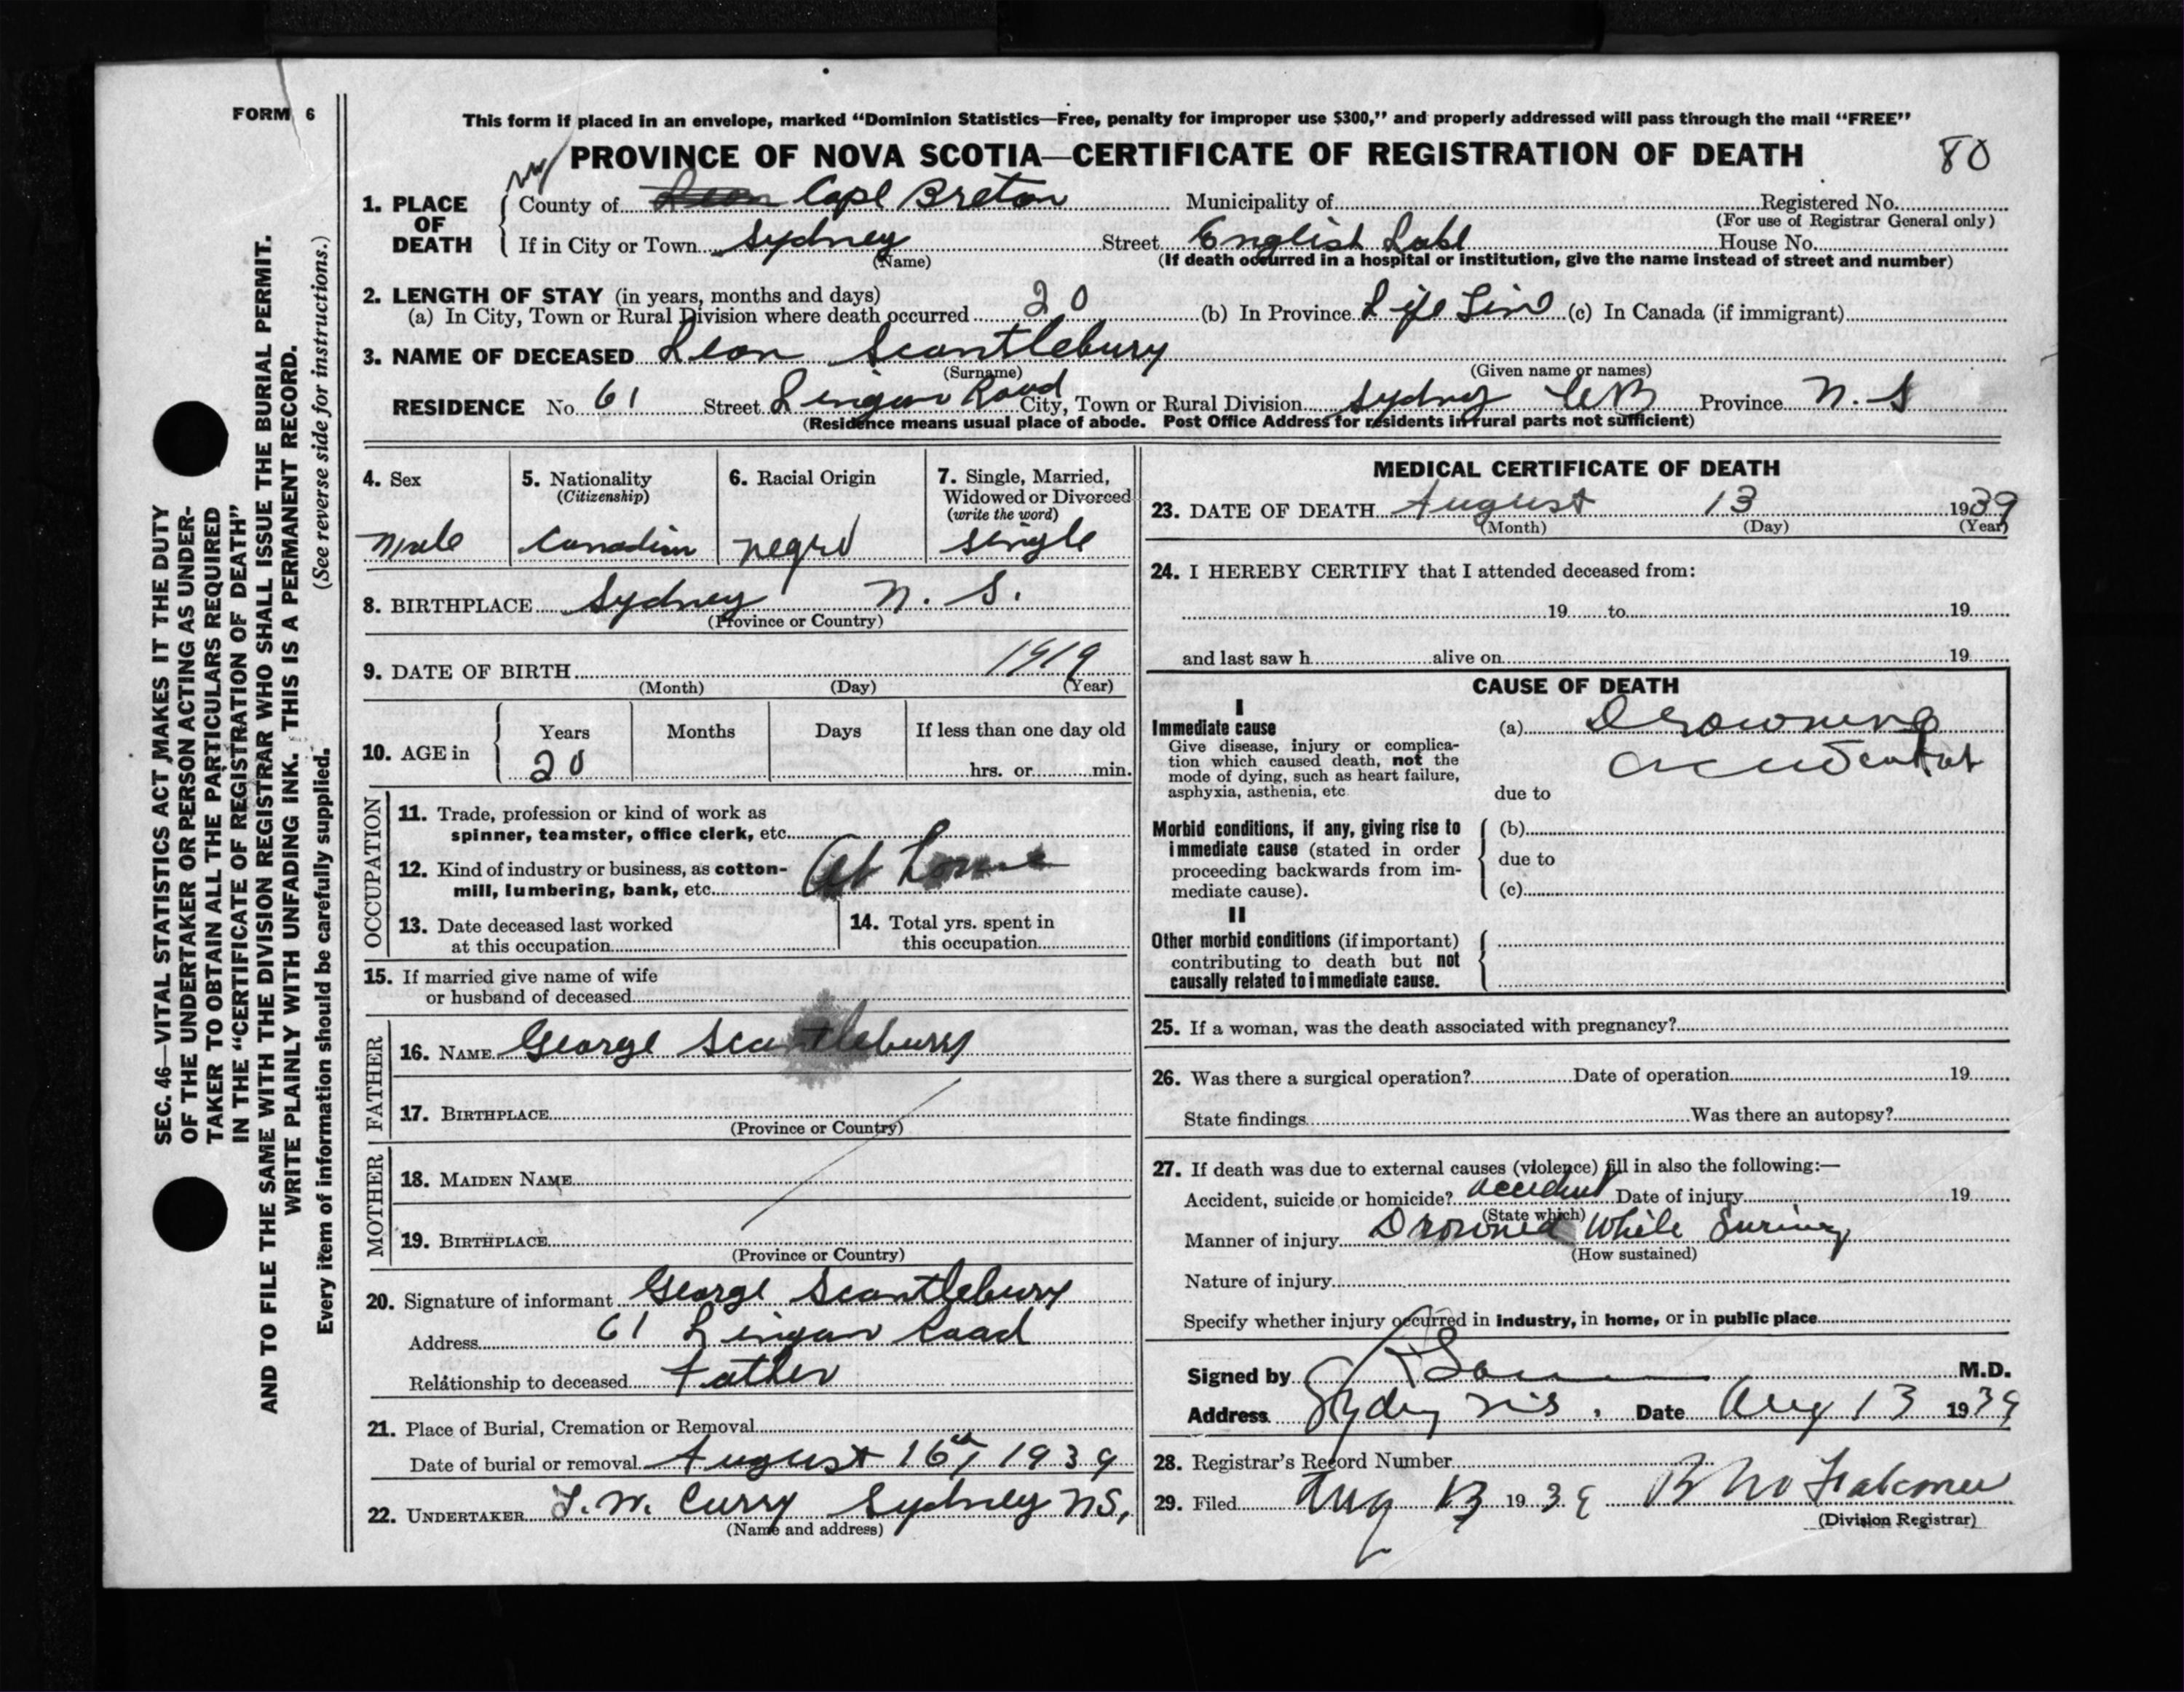 FORM 6
This form if placed in an envelope, marked “Dominion Statistics—Free, penalty for improper use $300,” and properly addressed will pass through the mail “FREE”
PROVINCE OF NOVA SCOTIA—CERTIFICATE OF REGISTRATION OF DEATH 80
1. PLACE OF DEATH
County of Cape Breton Municipality of Registered No.
(For use of Registrar General only)
If in City or Town Sydney Street English Lake House No.
(Name) (If death occurred in a hospital or institution, give the name instead of street and number)
2. LENGTH OF STAY (in years, months and days)
(a) In City, Town or Rural Division where death occurred 20 (b) In Province Life Time (c) In Canada (if immigrant)
3. NAME OF DECEASED Leon Scantlebury
(Surname) (Given name or names)
RESIDENCE No. 61 Street Lingan Road City, Town or Rural Division Sydney CB Province N. S
(Residence means usual place of abode. Post Office Address for residents in rural parts not sufficient)
4. Sex 5. Nationality (Citizenship) 6. Racial Origin 7. Single, Married, Widowed or Divorced (write the word)
Male Canadian negro single
8. BIRTHPLACE Sydney N. S.
(Province or Country)
9. DATE OF BIRTH 1919
(Month) (Day) (Year)
10. AGE in Years Months Days If less than one day old
20 hrs. or min.
OCCUPATION
11. Trade, profession or kind of work as
spinner, teamster, office clerk, etc.
12. Kind of industry or business, as cotton-
mill, lumbering, bank, etc. At home
13. Date deceased last worked
at this occupation
14. Total yrs. spent in
this occupation
15. If married give name of wife
or husband of deceased
FATHER
16. NAME George Scantlebury
17. BIRTHPLACE
(Province or Country)
MOTHER
18. MAIDEN NAME
19. BIRTHPLACE
(Province or Country)
20. Signature of informant George Scantlebury
Address 61 Lingan Road
Relationship to deceased Father
21. Place of Burial, Cremation or Removal
Date of burial or removal August 16th 1939
22. UNDERTAKER T. W. Curry Sydney NS,
(Name and address)
MEDICAL CERTIFICATE OF DEATH
23. DATE OF DEATH August 13 1939
(Month) (Day) (Year)
24. I HEREBY CERTIFY that I attended deceased from:
19 to 19
and last saw h alive on 19
CAUSE OF DEATH
I
Immediate cause (a) Drowning
Give disease, injury or complica-
tion which caused death, not the
mode of dying, such as heart failure,
asphyxia, asthenia, etc
accidental
due to
Morbid conditions, if any, giving rise to
immediate cause (stated in order
proceeding backwards from im-
mediate cause).
(b)
due to
(c)
II
Other morbid conditions (if important)
contributing to death but not
causally related to immediate cause.
25. If a woman, was the death associated with pregnancy?
26. Was there a surgical operation? Date of operation 19
State findings Was there an autopsy?
27. If death was due to external causes (violence) fill in also the following:—
Accident, suicide or homicide? accident Date of injury 19
(State which)
Manner of injury Drowned While
(How sustained)
Nature of injury
Specify whether injury occurred in industry, in home, or in public place
Signed by M.D.
Address Sydney N.S. Date Aug 13 1939
28. Registrar's Record Number
29. Filed Aug 13 1939 Falconer
(Division Registrar)
SEC. 46—VITAL STATISTICS ACT MAKES IT THE DUTY
OF THE UNDERTAKER OR PERSON ACTING AS UNDER-
TAKER TO OBTAIN ALL THE PARTICULARS REQUIRED
IN THE “CERTIFICATE OF REGISTRATION OF DEATH”
AND TO FILE THE SAME WITH THE DIVISION REGISTRAR WHO SHALL ISSUE THE BURIAL PERMIT.
WRITE PLAINLY WITH UNFADING INK. THIS IS A PERMANENT RECORD.
Every item of information should be carefully supplied. (See reverse side for instructions.)